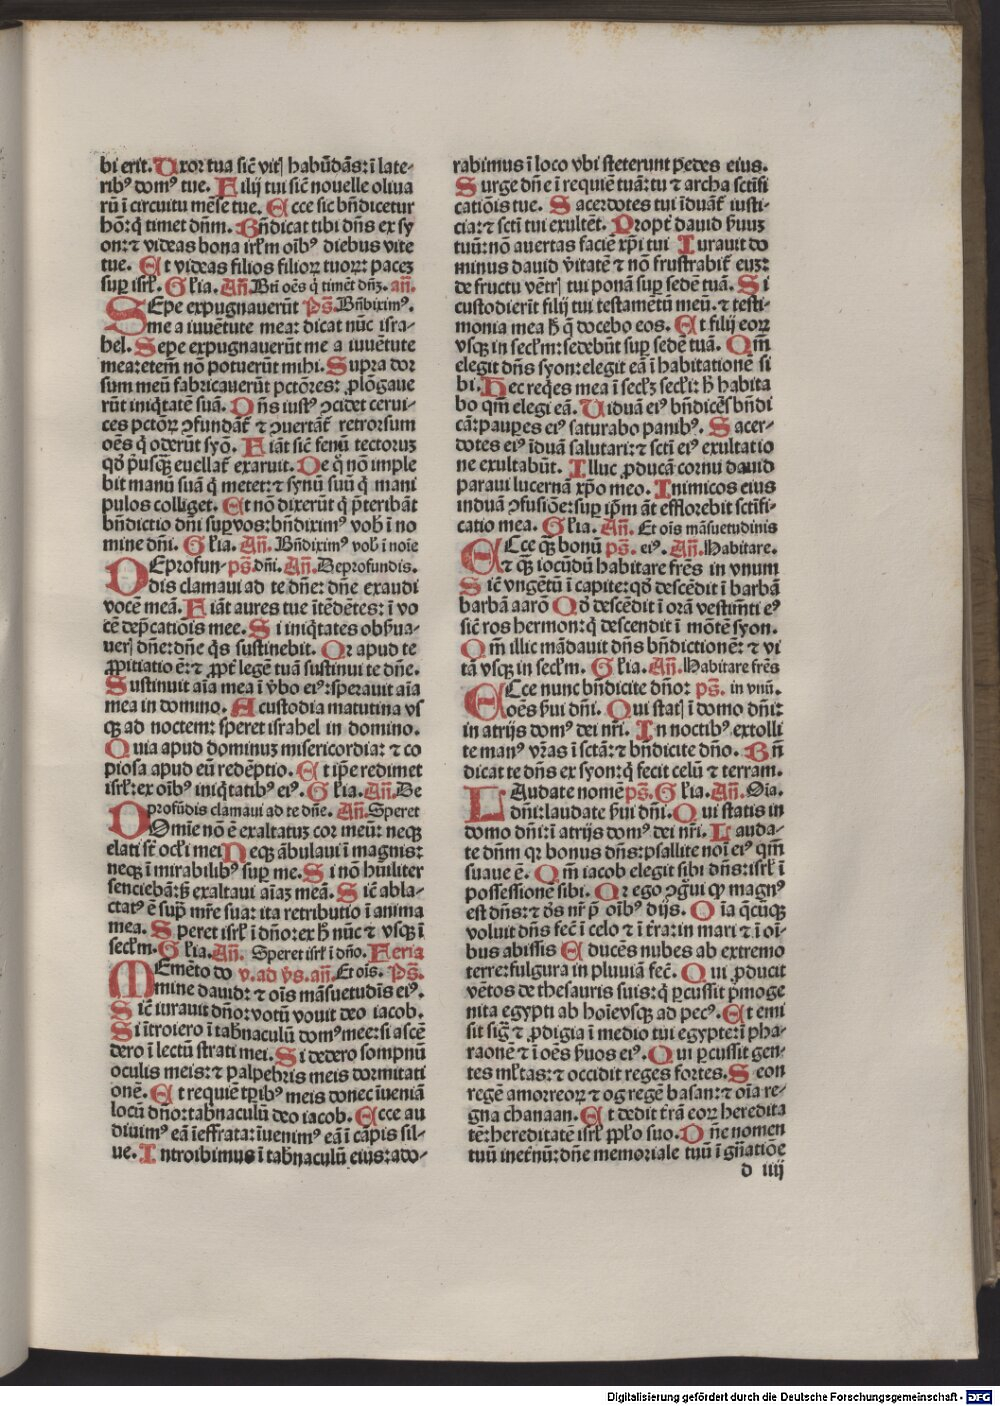 bi erit. Uxor tua sicĕ vitꝭ habūdās: ī late-
ribꝰ domꝰ tue. Filij tui sicĕ nouelle oliua
rū ī circuitu mēse tue. Ecce sic bn̄dicetur
hō: q̇ timet dn̄m. Bn̄dicat tibi dn̄s ex sy
on: ⁊ videas bona irl̄m oībꝰ diebus vite
tue. Et videas filios filioꝝ tuoꝝ: paceꝫ
suꝑ isrl̄. Gl̄ia. Añ. Bt̄i oēs q̇ timēt dn̄ꝫ. añ.
SEpe expugnauerūt Ps̄. Bn̄diximꝰ.
me a iuuētute mea: dicat nūc isra-
hel. Sepe expugnauerūt me a iuuētute
mea: etem̄ nō potuerūt mihi. Supra dor
sum meū fabricauerūt pctōres: ꝓlōgaue
rūt iniq̇tatē suā. Dn̄s iustꝰ ꝯcidet cerui-
ces pctōꝝ ꝯfundāt̄ ⁊ ꝯuertāt̄ retrorsum
oēs q̇ oderūt syō. Fiāt sicĕ fenū tectoruꝫ
qḋ p̄usqꝫ euellat̄ exaruit. De q̊ nō imple
bit manū suā q̇ metet: ⁊ synū suū q̇ mani
pulos colliget. Et nō dixerūt q̇ p̄teribāt
bn̄dictio dn̄i suꝑ vos: bn̄diximꝰ vob̄ ī no
mine dn̄i. Gl̄ia. Añ. Bn̄diximꝰ vob̄ ī noīe
DEprofun- ps̄. dn̄i. Añ. Deprofundis.
dis clamaui ad te dn̄e: dn̄e exaudi
vocē meā. Fiāt aures tue ītēdētes: ī vo
cē dep̄catiōis mee. Si iniq̇tates obẜua-
uerꝭ dn̄e: dn̄e q̇s sustinebit. Qr apud te
ꝓpitiatio ē: ⁊ ꝓpt̄ legē tuā sustinui te dn̄e.
Sustinuit aīa mea ī v̄bo eiꝰ: sperauit aīa
mea in domino. A custodia matutina vs
qꝫ ad noctem: speret israhel in domino.
Quia apud dominuꝫ misericordia: ⁊ co
piosa apud eū redēptio. Et ip̄e redimet
isrl̄: ex oībꝰ iniq̇tatibꝰ eiꝰ. Gl̄ia. Añ. De
profūdis clamaui ad te dn̄e. Añ. Speret
DOmīe nō ē exaltatuꝫ cor meū: neqꝫ
elati st̄ ocl̄i mei Neqꝫ ābulaui ī magnis:
neqꝫ ī mirabilibꝰ suꝑ me. Si nō hūiliter
senciebā: ẜꝫ exaltaui aīaꝫ meā. Sicĕ abla-
ctatꝰ ē suꝑ mr̄e sua: ita retributio ī anima
mea. Speret isrl̄ ī dn̄o: ex h̄ nūc ⁊ vsqꝫ ī
secl̄m. Gl̄ia. Añ. Speret isrl̄ ī dn̄o. Feria
MEmēto do v. ad v̄s. añ. Et oīs. Ps̄.
mine dauid: ⁊ oīs māsuetudīs eiꝰ.
Sicĕ iurauit dn̄o: votū vouit deo iacob.
Si ītroiero ī tab̄naculū domꝰ mee: si ascē
dero ī lectū strati mei. Si dedero sompnū
oculis meis: ⁊ palpebris meis dormitati
onē. Et requiē tp̄ibꝰ meis donec īueniā
locū dn̄o: tab̄naculū deo iacob. Ecce au
diuimꝰ eā ī effrata: īuenimꝰ eā ī cāpis sil-
ue. Introibimus ī tab̄naculū eius: ado-
rabimus ī loco vbi steterunt pedes eius.
Surge dn̄e ī requiē tuā: tu ⁊ archa sctīfi
catiōis tue. Sacerdotes tui īduāt̄ iusti-
ciā: ⁊ sct̄i tui exultēt. Propt̄ dauid ẜuuꝫ
tuū: nō auertas faciē xp̄i tui Iurauit do
minus dauid v̄itatē ⁊ nō frustrabit̄ euꝫ:
de fructu vētrꝭ tui ponā suꝑ sedē tuā. Si
custodierīt filij tui testamētū meū. ⁊ testi-
monia mea h̄ q̄ docebo eos. Et filij eoꝝ
vsqꝫ in secl̄m: sedebūt suꝑ sedē tuā. Qm̄
elegit dn̄s syon: elegit eā ī habitationē si
bi. Hec req̇es mea ī secl̄ꝫ secl̄i: h̄ habita
bo qm̄ elegi eā. Uiduā eiꝰ bn̄dicēs bn̄di
cā: pauꝑes eiꝰ saturabo panibꝰ. Sacer-
dotes eiꝰ īduā salutari: ⁊ sct̄i eiꝰ exultatio
ne exultabūt. Illuc ꝓducā cornu dauid
paraui lucernā xp̄o meo. Inimicos eius
induā ꝯfusiōe: suꝑ ip̄m āt efflorebit sctīfi-
catio mea. Gl̄ia. Añ. Et oīs māsuetudinis
ECce qꝫ bonū ps̄. eiꝰ. Añ. Habitare.
⁊ qꝫ iocūdū habitare frēs in vnum
Sicĕ vngētū ī capite: qḋ descēdit ī barbā
barbā aarō Qḋ descēdit ī orā vestim̄ti eiꝰ
sicĕ ros hermon: q̇ descendit ī mōtē syon.
Qm̄ illic mādauit dn̄s bn̄dictionē: ⁊ vi
tā vsqꝫ in secl̄m. Gl̄ia. Añ. Habitare frēs
ECce nunc bn̄dicite dn̄o: ps̄. in vnū.
oēs ẜui dn̄i. Qui statꝭ ī domo dn̄i:
in atrijs domꝰ dei nr̄i. In noctibꝰ extolli
te manꝰ vr̄as ī sctā: ⁊ bn̄dicite dn̄o. Bn̄
dicat te dn̄s ex syon: q̇ fecit celū ⁊ terram.
LAudate nomē ps̄. Gl̄ia. Añ. Oīa.
dn̄i: laudate ẜui dn̄i. Qui statis in
domo dn̄i: ī atrijs domꝰ dei nr̄i. Lauda-
te dn̄m qr bonus dn̄s: psallite noī eiꝰ qm̄
suaue ē. Qm̄ iacob elegit sibi dn̄s: isrl̄ ī
possessionē sibi. Qr ego ꝯg̊ui ꝙ magnꝰ
est dn̄s: ⁊ d̄s nr̄ p̄ oībꝰ dijs. Oīa q̄cūqꝫ
voluit dn̄s fec̄ ī celo ⁊ ī t̄ra: in mari ⁊ ī oī-
bus abissis Educēs nubes ab extremo
terre: fulgura in pluuiā fec̄. Qui ꝓducit
vētos de thesauris suis: q̇ ꝑcussit p̄moge
nita egypti ab hoīe vsqꝫ ad pecꝰ. Et emi
sit siḡ ⁊ ꝓdigia ī medio tui egypte: ī pha-
raonē ⁊ ī oēs ẜuos eiꝰ. Qui ꝑcussit gen-
tes ml̄tas: ⁊ occidit reges fortes. Seon
regē amorreoꝝ ⁊ og regē basan: ⁊ oīa re-
gna chanaan. Et dedit t̄rā eoꝝ heredita
tē: hereditatē isrl̄ ppl̄o suo. Dn̄e nomen
tuū inet̄nū: dn̄e memoriale tuū ī gn̄atiōe
d iiij
Digitalisierung gefördert durch die Deutsche Forschungsgemeinschaft - DFG